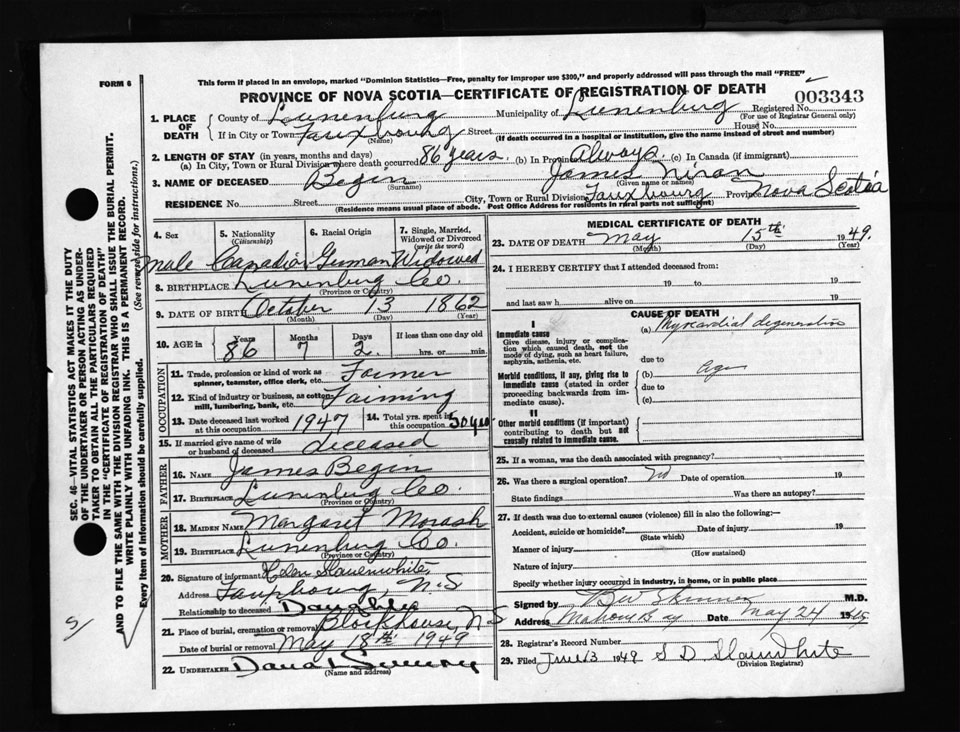 FORM 6
This form if placed in an envelope, marked "Dominion Statistics—Free, penalty for improper use $300," and properly addressed will pass through the mail "FREE"
PROVINCE OF NOVA SCOTIA—CERTIFICATE OF REGISTRATION OF DEATH
003343
1. PLACE OF DEATH
County of Lunenburg Municipality of Lunenburg Registered No.
(For use of Registrar General only)
If in City or Town Fauxbourg Street House No.
(Name) (If death occurred in a hospital or institution, give the name instead of street and number)
2. LENGTH OF STAY (in years, months and days)
(a) In City, Town or Rural Division where death occurred 86 years. (b) In Province Always (c) In Canada (if immigrant)
3. NAME OF DECEASED Begin James Niran
(Surname) (Given name or names)
RESIDENCE No. Street City, Town or Rural Division Fauxbourg Province Nova Scotia
(Residence means usual place of abode. Post Office Address for residents in rural parts not sufficient)
4. Sex 5. Nationality (Citizenship) 6. Racial Origin 7. Single, Married, Widowed or Divorced (write the word)
Male Canadian German Widowed
8. BIRTHPLACE Lunenburg Co.
(Province or Country)
9. DATE OF BIRTH October 13 1862
(Month) (Day) (Year)
10. AGE in Years Months Days If less than one day
86 7 2 hrs. or min.
OCCUPATION
11. Trade, profession or kind of work as spinner, teamster, office clerk, etc. Farmer
12. Kind of industry or business, as cotton mill, lumbering, bank, etc. Farming
13. Date deceased last worked at this occupation 1947 14. Total yrs. spent in this occupation 50 yrs
15. If married give name of wife or husband of deceased deceased
FATHER
16. NAME James Begin
17. BIRTHPLACE Lunenburg Co.
(Province or Country)
MOTHER
18. MAIDEN NAME Margaret Morash
19. BIRTHPLACE Lunenburg Co.
(Province or Country)
20. Signature of informant Helen Slauenwhite
Address Fauxbourg, N.S
Relationship to deceased Daughter
21. Place of burial, cremation or removal Blockhouse, N S
Date of burial or removal May 18th 1949
22. UNDERTAKER
(Name and address)
MEDICAL CERTIFICATE OF DEATH
23. DATE OF DEATH May 15th 1949.
(Month) (Day) (Year)
24. I HEREBY CERTIFY that I attended deceased from:
19 to 19
and last saw h alive on 19
CAUSE OF DEATH
I
Immediate cause
Give disease, injury or complication which caused death, not the mode of dying, such as heart failure, asphyxia, asthenia, etc.
(a) Myocardial degeneration
due to
Morbid conditions, if any, giving rise to immediate cause (stated in order proceeding backwards from immediate cause).
(b) Age
due to
(c)
II
Other morbid conditions (if important) contributing to death but not causally related to immediate cause.
25. If a woman, was the death associated with pregnancy?
26. Was there a surgical operation? No Date of operation 19
State findings Was there an autopsy?
27. If death was due to external causes (violence) fill in also the following:—
Accident, suicide or homicide? Date of injury 19
(State which)
Manner of injury
(How sustained)
Nature of injury
Specify whether injury occurred in industry, in home, or in public place
Signed by B W Skinner M.D.
Address Mahone Bay Date May 24 1949
28. Registrar's Record Number
29. Filed June 13 1949 S D Slaunwhite
(Division Registrar)
SEC. 46—VITAL STATISTICS ACT MAKES IT THE DUTY
OF THE UNDERTAKER OR PERSON ACTING AS UNDER-
TAKER TO OBTAIN ALL THE PARTICULARS REQUIRED
IN THE "CERTIFICATE OF REGISTRATION OF DEATH"
AND TO FILE THE SAME WITH THE DIVISION REGISTRAR WHO SHALL ISSUE THE BURIAL PERMIT.
WRITE PLAINLY WITH UNFADING INK. THIS IS A PERMANENT RECORD.
Every item of information should be carefully supplied. (See reverse side for instructions.)